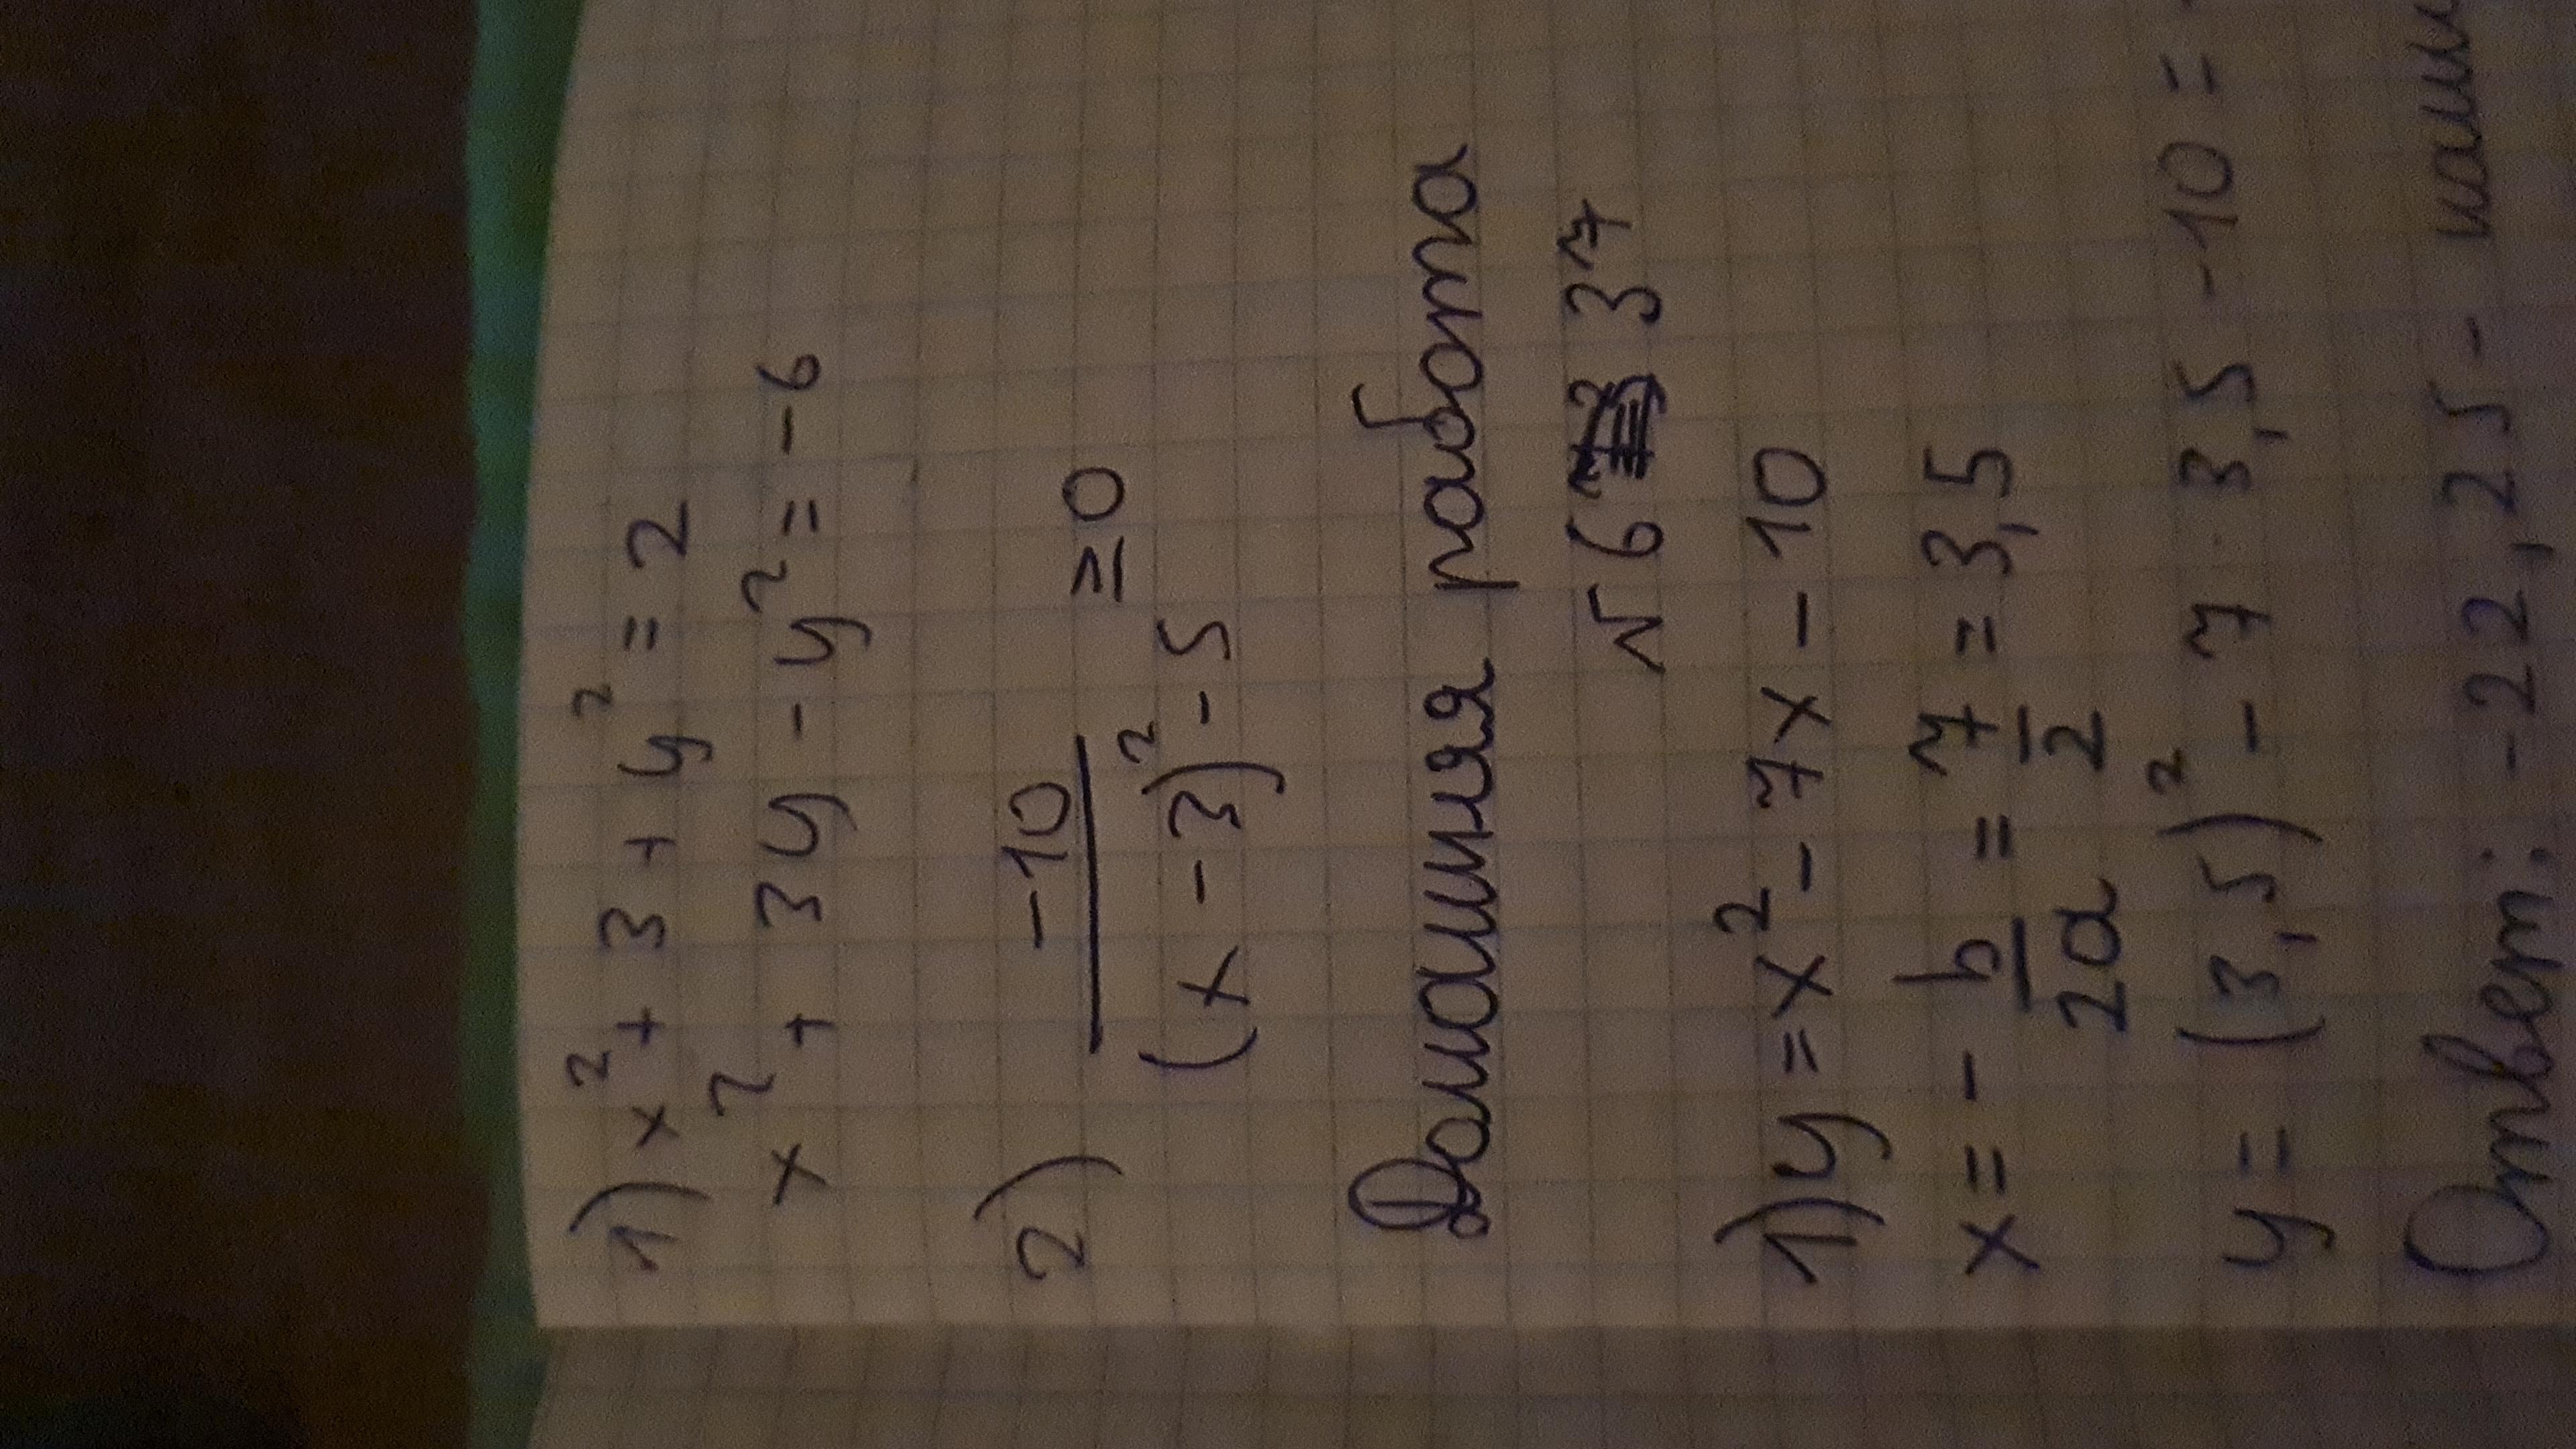 1) x² + 3 + y² = 2
x² + 3y - y² = -6
2) -10 / (x - 3)² - 5 ≥ 0
Домашняя работа
№ 637
1) y = x² - 7x - 10
x = - b/2a = 7/2 = 3,5
y = (3,5)² - 7 · 3,5 - 10 =
Ответ: -22,25 -